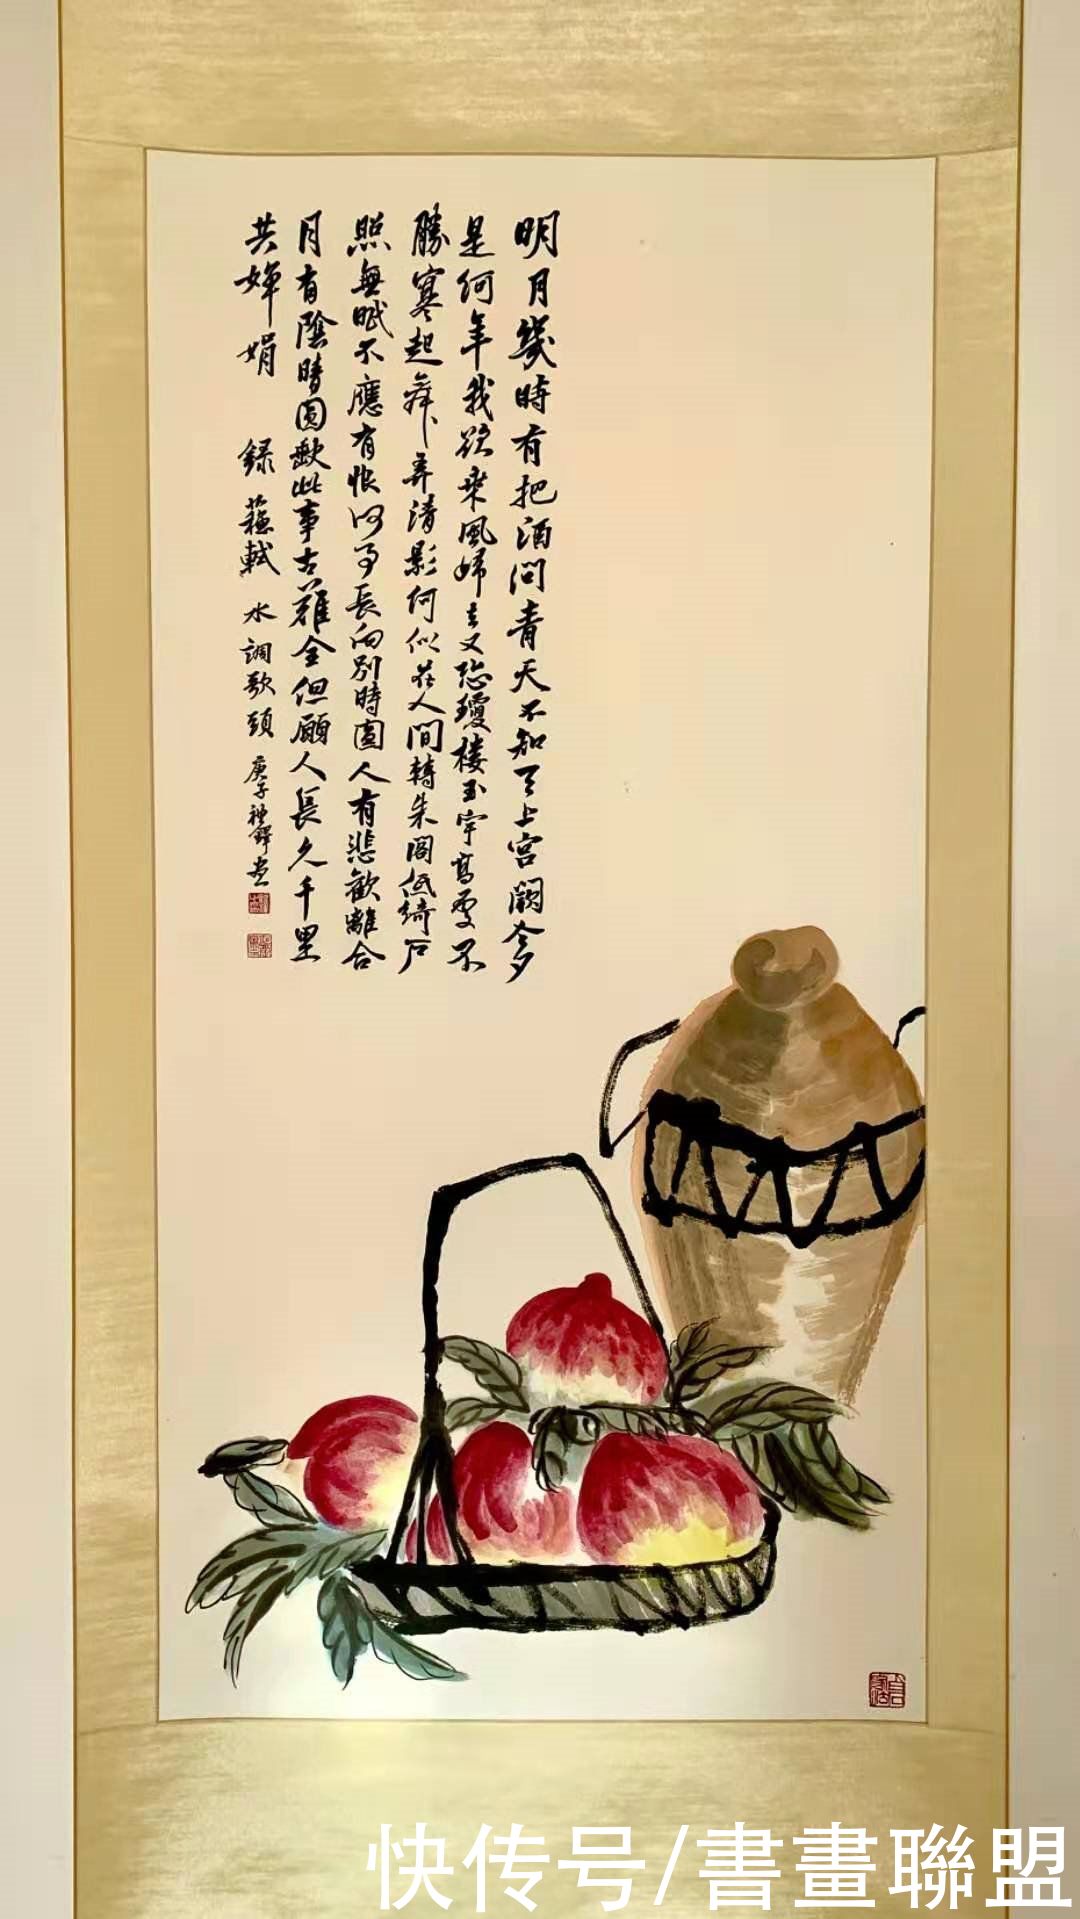 明月幾時有把酒問青天不知天上宮闕今夕
是何年我欲乘風歸去又恐瓊樓玉宇高處不
勝寒起舞弄清影何似在人間轉朱閣低綺戶
照無眠不應有恨何事長向別時圓人有悲歡離合
月有陰晴圓缺此事古難全但願人長久千里
共嬋娟 錄蘇軾水調歌頭 庚子
快传号/書畫聯盟